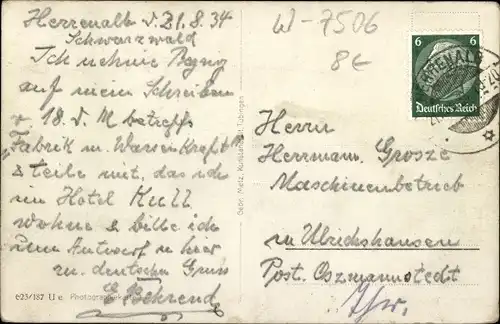 Herrenalb d. 21.8.34
Schwarzwald
Ich nehme Bezug
auf mein Schreiben
v. 18. d. M betreffs
"Fabrik u. Warenkraft"
& teile mit, das ich
im Hotel Kull
wohne & bitte ich
um Antwort u hier
m. deutschen Gruss
E Behrend
e23/187 U e. Photographie
Gebr. Metz, Kunstanstalt, Tübingen
W-7506
8€
6 6
Deutsches Reich
HERRENALB
Herrn
Herrmann Grosze
Maschinenbetrieb
zu Ulrichshausen
Post. Oszmannstedt
Thür.